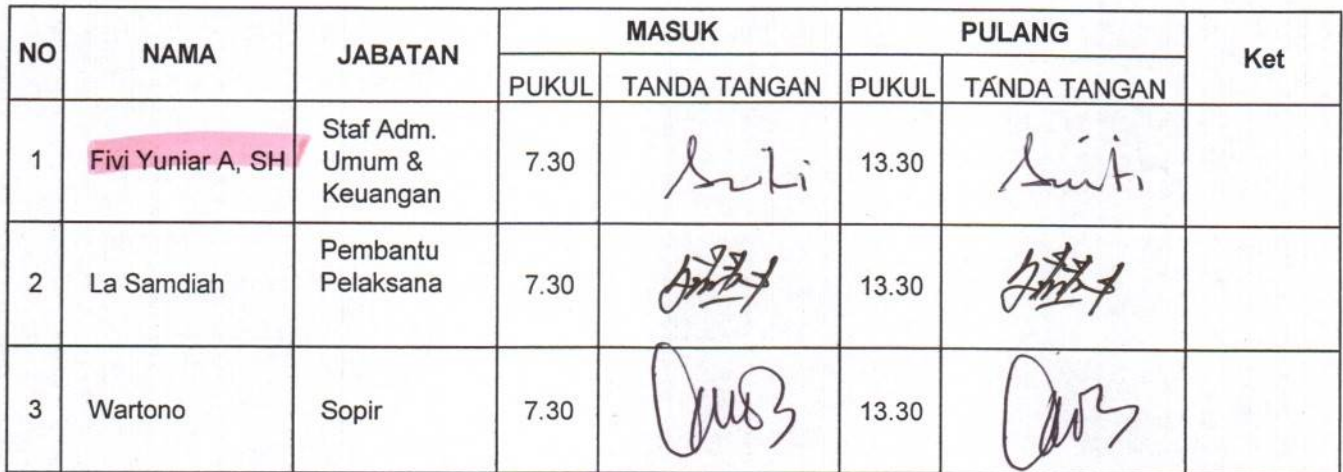 NO NAMA JABATAN MASUK PULANG Ket
PUKUL TANDA TANGAN PUKUL TANDA TANGAN
1 Fivi Yuniar A, SH Staf Adm. Umum & Keuangan 7.30 13.30
2 La Samdiah Pembantu Pelaksana 7.30 13.30
3 Wartono Sopir 7.30 13.30